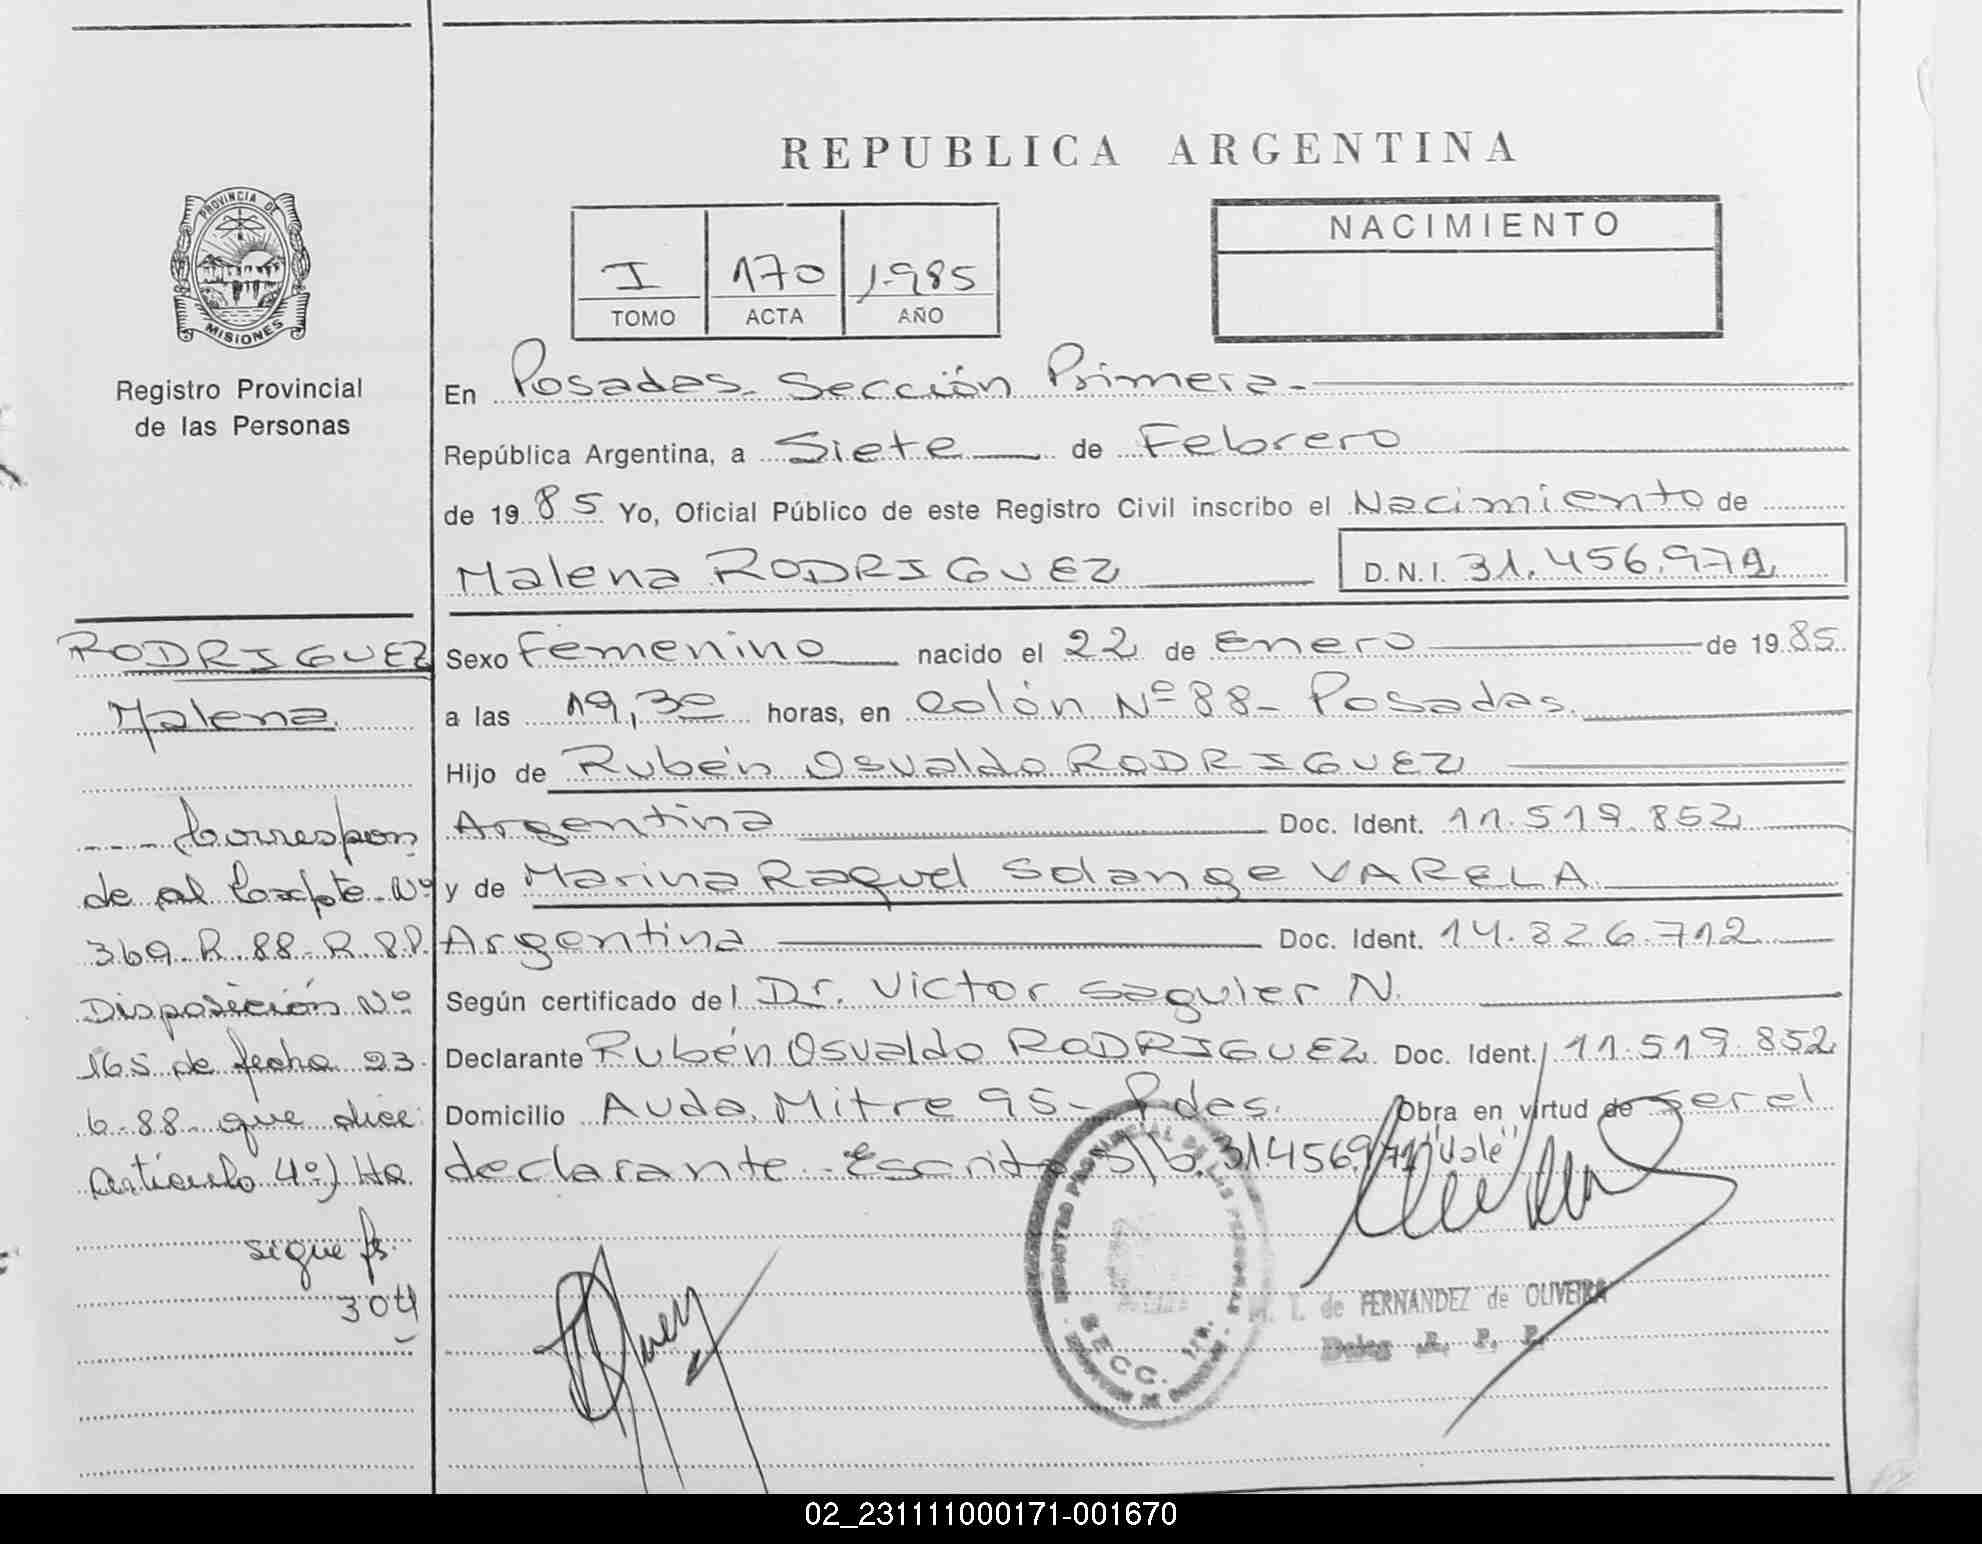 REPUBLICA ARGENTINA
PROVINCIA DE
MISIONES
Registro Provincial
de las Personas
I
TOMO
170
ACTA
1.985
AÑO
NACIMIENTO
En Posadas. Sección Primera.
República Argentina, a Siete de Febrero
de 1985 Yo, Oficial Público de este Registro Civil inscribo el Nacimiento de
Malena RODRIGUEZ
D.N.I. 31.456.971
Sexo Femenino nacido el 22 de Enero de 1985.
a las 19,30 horas, en Colón Nº 88- Posadas.
Hijo de Rubén Osvaldo RODRIGUEZ
Argentina Doc. Ident. 11.519.852
y de Marina Raquel Solange VARELA
Argentina Doc. Ident. 14.826.712
Según certificado del Dr. Victor Saguier N.
Declarante Rubén Osvaldo RODRIGUEZ. Doc. Ident. 11.519.852
Domicilio Avda. Mitre 95- Pdas. Obra en virtud de ser el
declarante. Escrito s/b. 31.456.971 "Vale"
RODRIGUEZ
Malena
Correspon
de al Nº
369-R-88-R.
Disposición Nº
165 de fecha 23
6-88- que dice:
Artículo 4º) Ha
sigue fs.
304
REGISTRO PROVINCIAL DE LAS PERSONAS
SECC. 1RA.
I. de FERNANDEZ de OLIVEIRA
Deleg R. P. P.
02_231111000171-001670